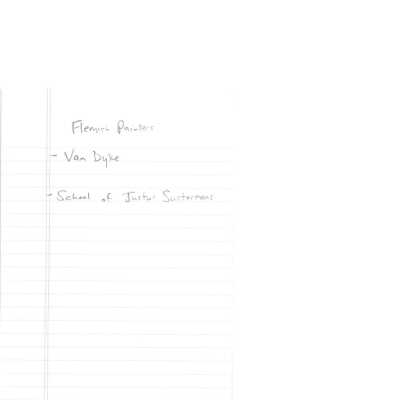 Flemish Painters
- Van Dyke
- School of Justus Sustermans